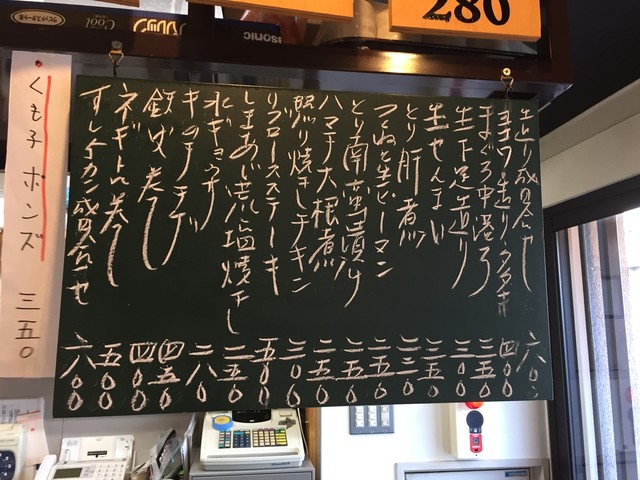 280
Panasonic
Cool
造り盛合せ 六〇〇
ヨコワ造り、タタキ 四〇〇
まぐろ中落ち 三五〇
生下足造り 三〇〇
生せんまい 三五〇
とり肝煮 二三〇
つくねと生ピーマン 二五〇
とり南蛮漬け 三五〇
ハマチ大根煮 三五〇
照り焼きチキン 三〇〇
リブロースステーキ 五〇〇
しまあじ荒塩焼き 三五〇
水ギョウザ 二八〇
キムチチゲ 四五〇
鉄火巻き 四〇〇
ネギトロ巻き 五〇〇
すし 盛合せ 六〇〇
くも子ポンズ 三五〇